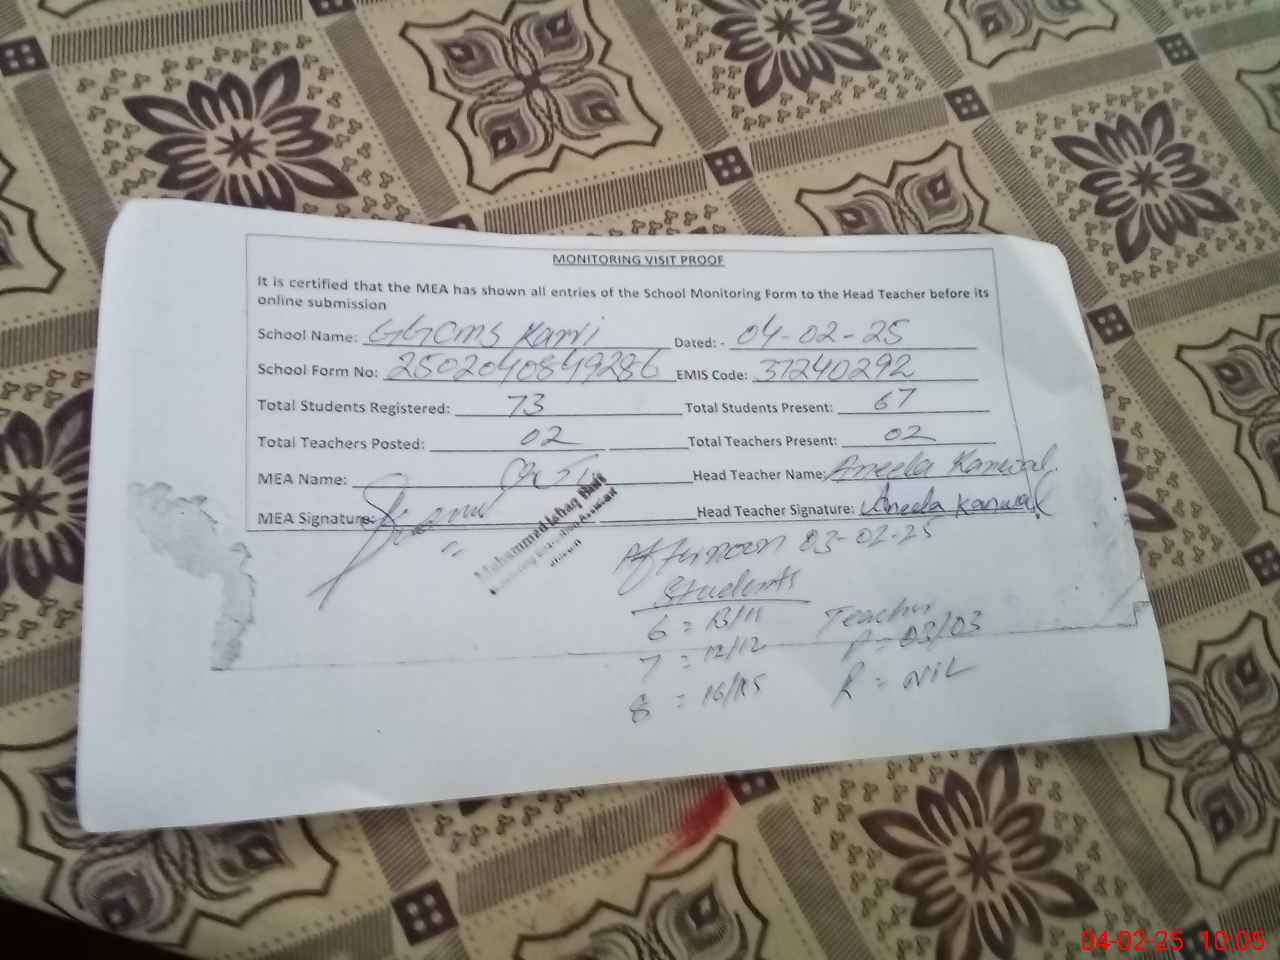 MONITORING VISIT PROOF
It is certified that the MEA has shown all entries of the School Monitoring Form to the Head Teacher before its
online submission
School Name: GGCMS Karvi Dated: - 04-02-25
School Form No: 2502040849286 EMIS Code: 37240292
Total Students Registered: 73 Total Students Present: 67
Total Teachers Posted: 02 Total Teachers Present: 02
MEA Name: Head Teacher Name: Aneela Kanwal
MEA Signature: Head Teacher Signature: Aneela Kanwal
Muhammad Ishaq
Afternoon 03-02-25
Students
6 = 13/11 Teacher
7 = 12/12 P = 03/03
8 = 16/15 R = NIL
04-02-25 10:05